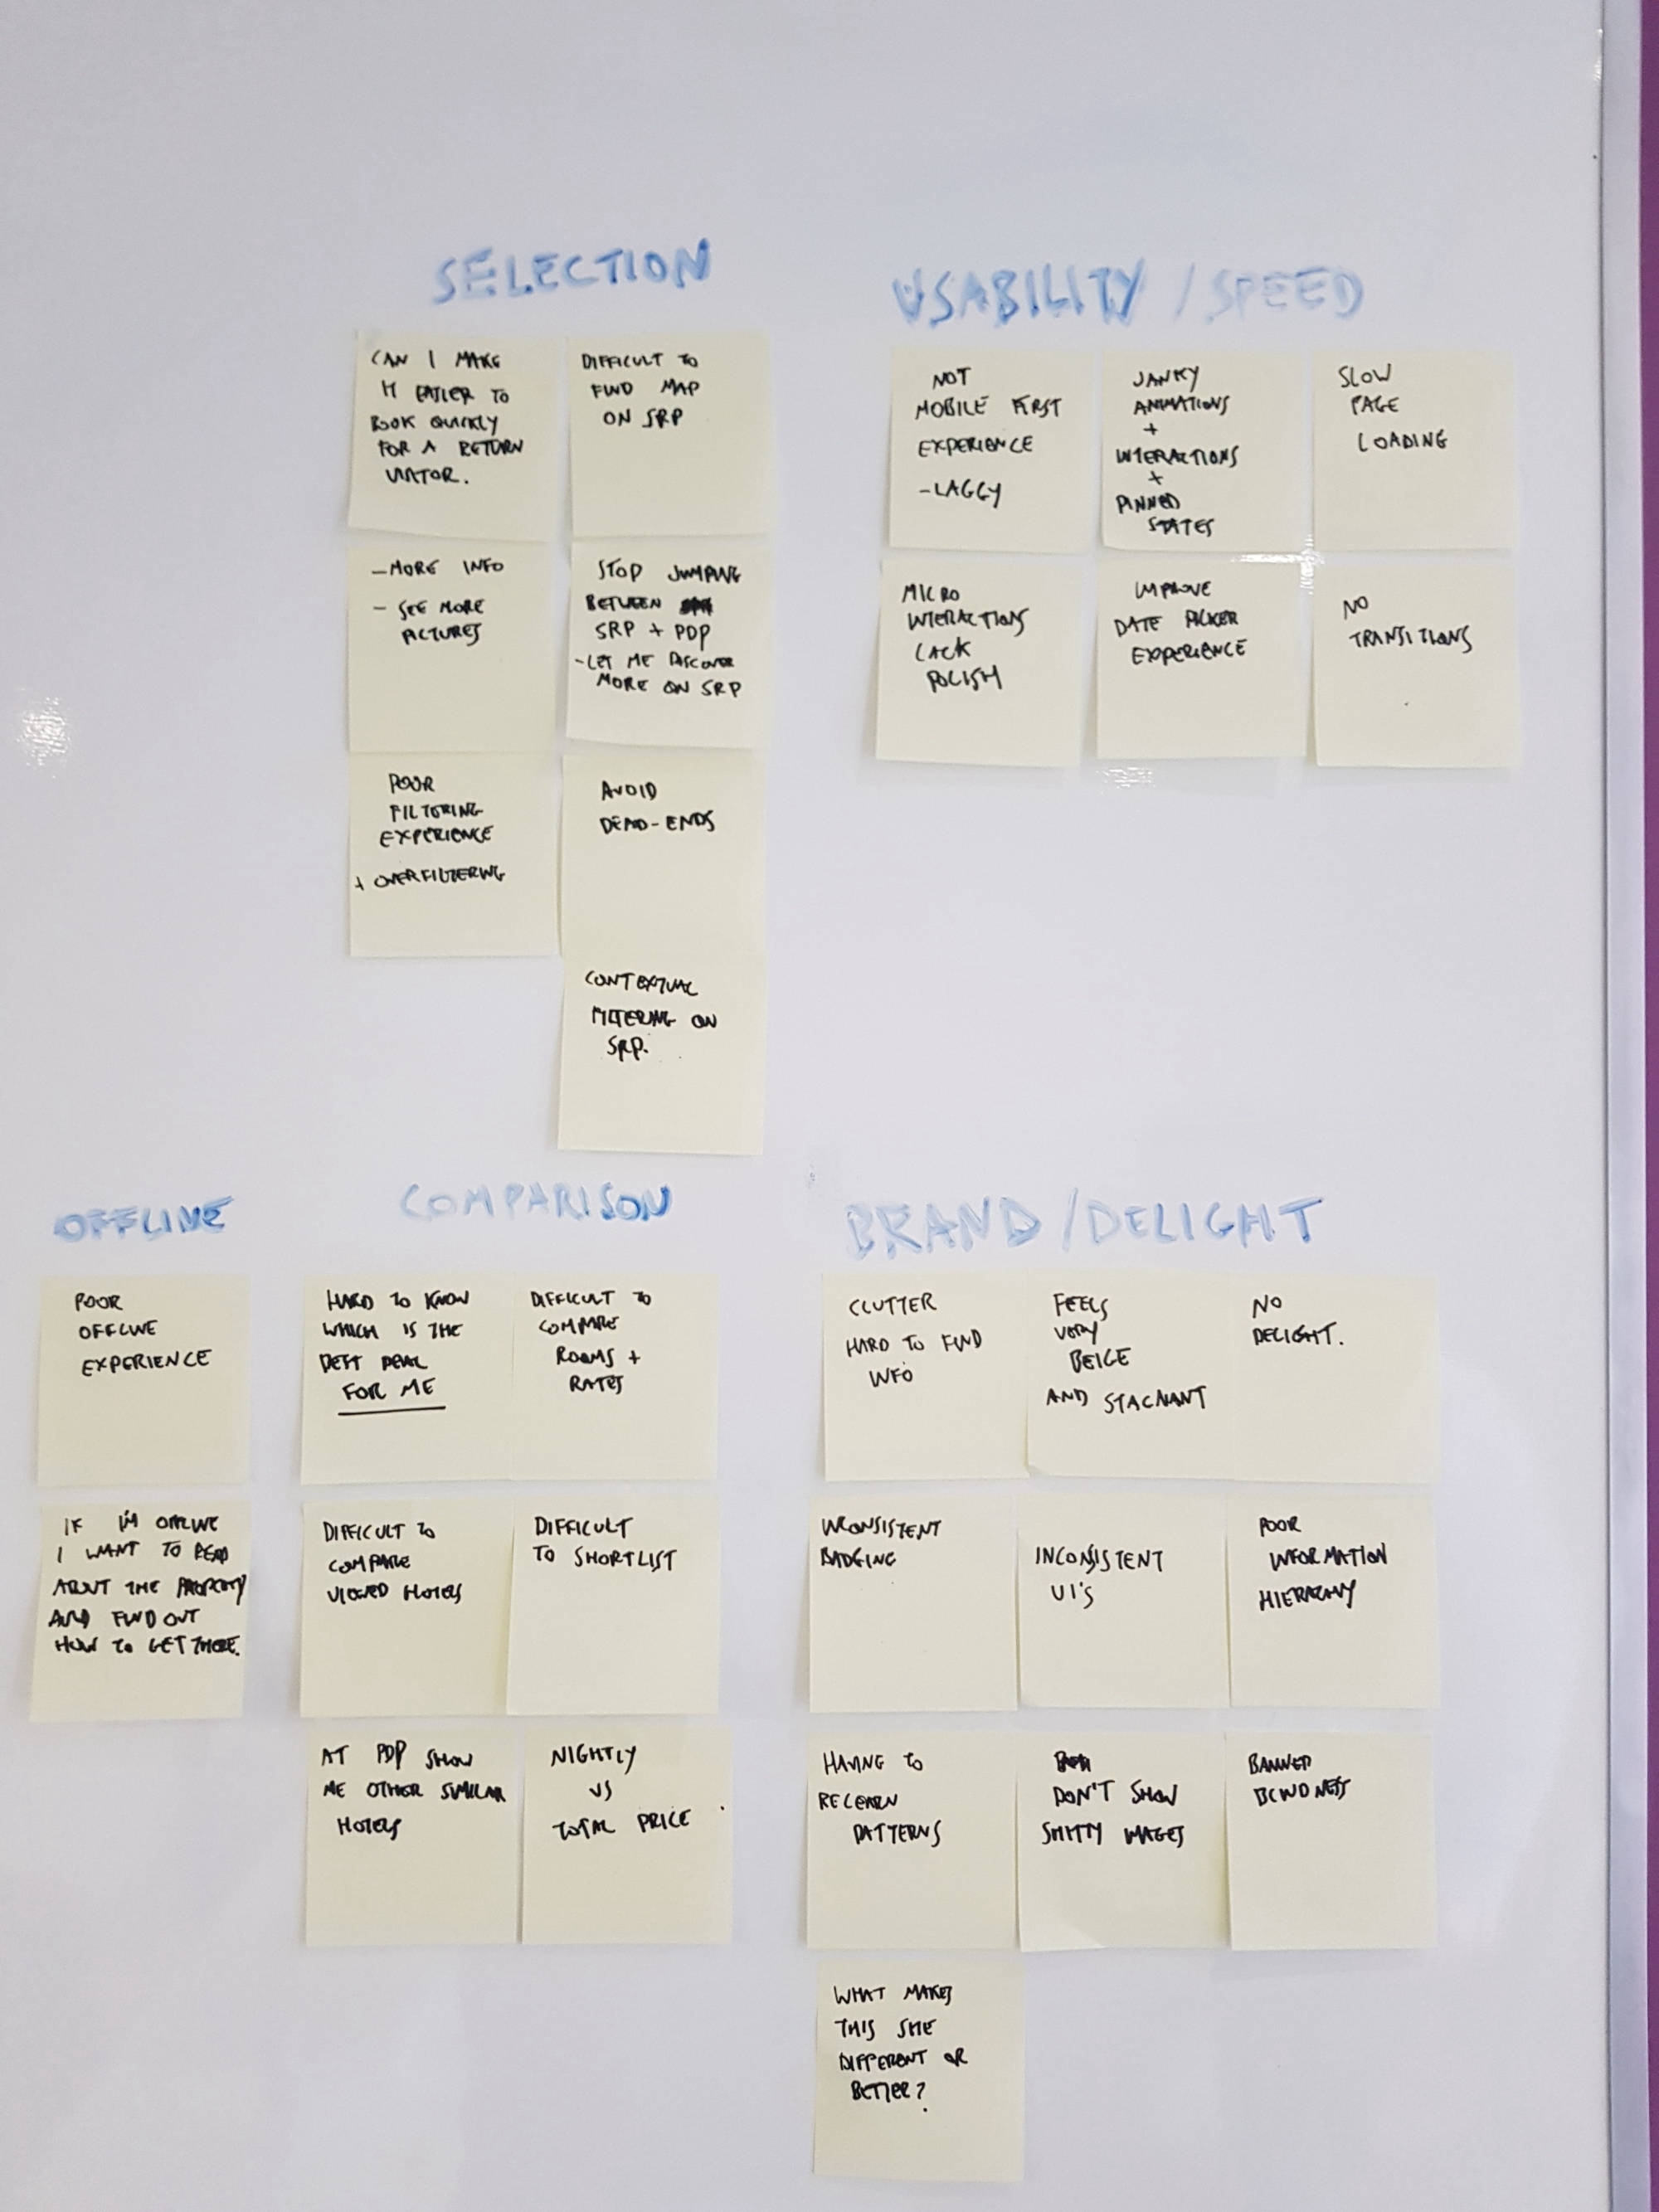 SELECTION
CAN I MAKE
IT EASIER TO
BOOK QUICKLY
FOR A RETURN
VISITOR.
DIFFICULT TO
FIND MAP
ON SRP
- MORE INFO
- SEE MORE
PICTURES
STOP JUMPING
BETWEEN
SRP + PDP
- LET ME DISCOVER
MORE ON SRP
POOR
FILTERING
EXPERIENCE
+ OVERFILTERING
AVOID
DEAD-ENDS
CONTEXTUAL
FILTERING ON
SRP.
USABILITY / SPEED
NOT
MOBILE FIRST
EXPERIENCE
- LAGGY
JANKY
ANIMATIONS
+
INTERACTIONS
+
PINNED
STATES
SLOW
PAGE
LOADING
MICRO
INTERACTIONS
LACK
POLISH
IMPROVE
DATE PICKER
EXPERIENCE
NO
TRANSITIONS
OFFLINE
POOR
OFFLINE
EXPERIENCE
IF I'M OFFLINE
I WANT TO READ
ABOUT THE PROPERTY
AND FIND OUT
HOW TO GET THERE.
COMPARISON
HARD TO KNOW
WHICH IS THE
BEST DEAL
FOR ME
DIFFICULT TO
COMPARE
ROOMS +
RATES
DIFFICULT TO
COMPARE
VIEWED HOTELS
DIFFICULT
TO SHORTLIST
AT PDP SHOW
ME OTHER SIMILAR
HOTELS
NIGHTLY
VS
TOTAL PRICE
BRAND / DELIGHT
CLUTTER
HARD TO FIND
INFO
FEELS
VERY
BEIGE
AND STAGNANT
NO
DELIGHT.
INCONSISTENT
BADGING
INCONSISTENT
UI'S
POOR
INFORMATION
HIERARCHY
HAVING TO
RELEARN
PATTERNS
DON'T SHOW
SHITTY IMAGES
BANNER
BLINDNESS
WHAT MAKES
THIS SITE
DIFFERENT OR
BETTER?